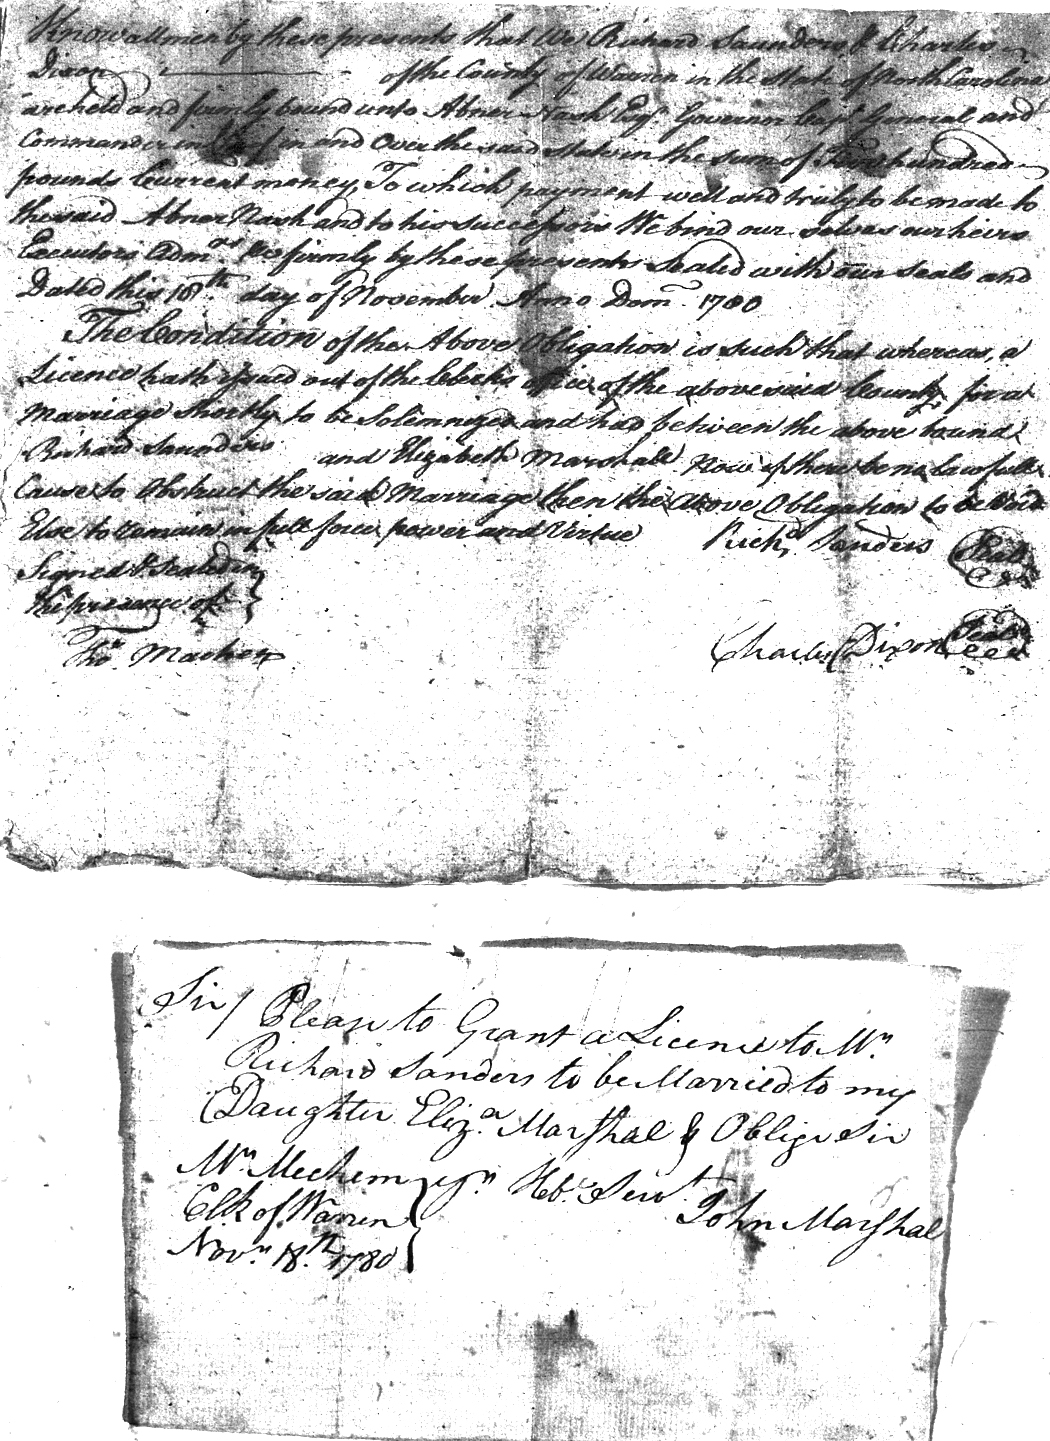 Know all men by these presents that We Richard Saunders & Charles
Dixon of the County of Warren in the State of North Carolina
are held and firmly bound unto Abner Nash Esqr. Governor Capt. General and
Commander in Chief in and Over the said State in the sum of hundred
pounds Current money, To which payment well and truly to be made to
the said Abner Nash and to his successors We bind our selves our heirs
Executors Adm.ors &c firmly by these presents Sealed with our Seals and
Dated this 18th day of November Anno Dom. 1780
The Condition of the Above Obligation is Such that whereas, a
Licence hath issued out of the Clerks office of the abovesaid County for a
Marriage shortly to be Solemnized and had between the above bound
Richard Saunders and Elizabeth Marshall Now if there be no Lawfull
Cause to Obstruct the said Marriage then the above Obligation to be Void
Else to remain in full force power and Virtue
Richd. Sanders Seal
Signed & Sealed in
the presence of
Thos. Machen
Charles Dixon Seal
Sir/ Please to Grant a Licence to Mr.
Richard Sanders to be Married to my
Daughter Eliza. Marshal & Oblige Sir
Mr. Mechem yr. Hble. Servt.
Clk of Warren John Marshal
Novr. 18th. 1780